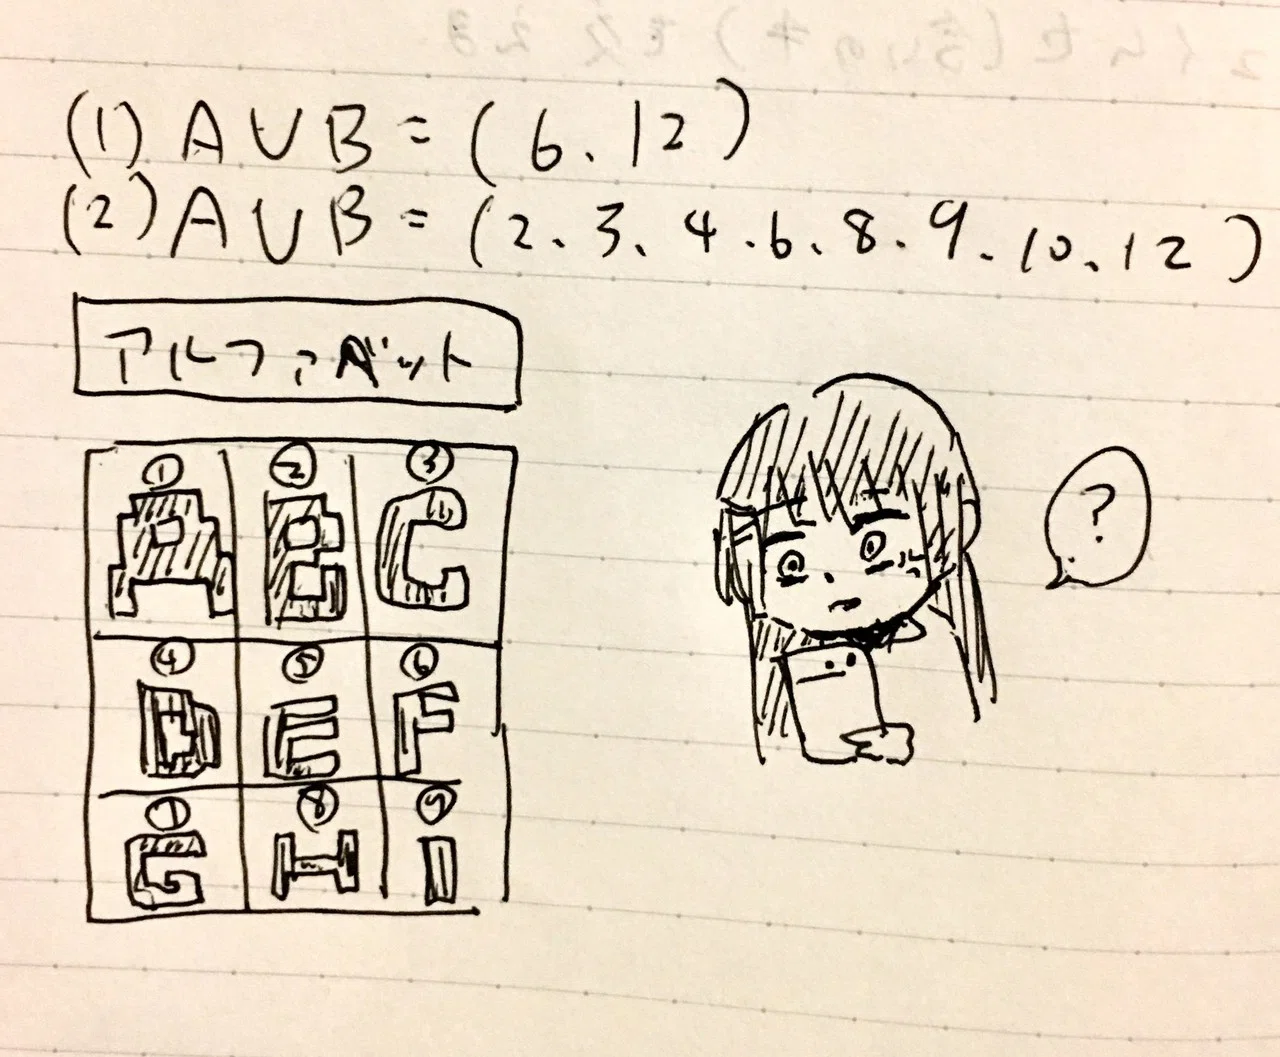 (1) A∪B=(6.12)
(2) A∪B=(2.3.4.6.8.9.10.12)
アルファベット
① ② ③
A B C
?
④ ⑤ ⑥
D E F
⑦ ⑧ ⑨
G H I